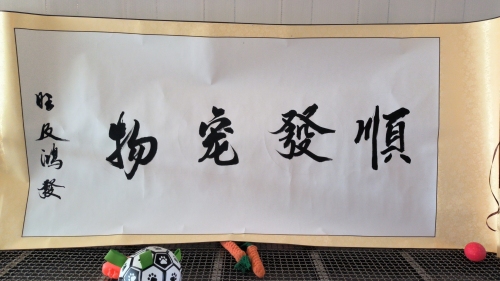 順發寵物
旺友鴻發